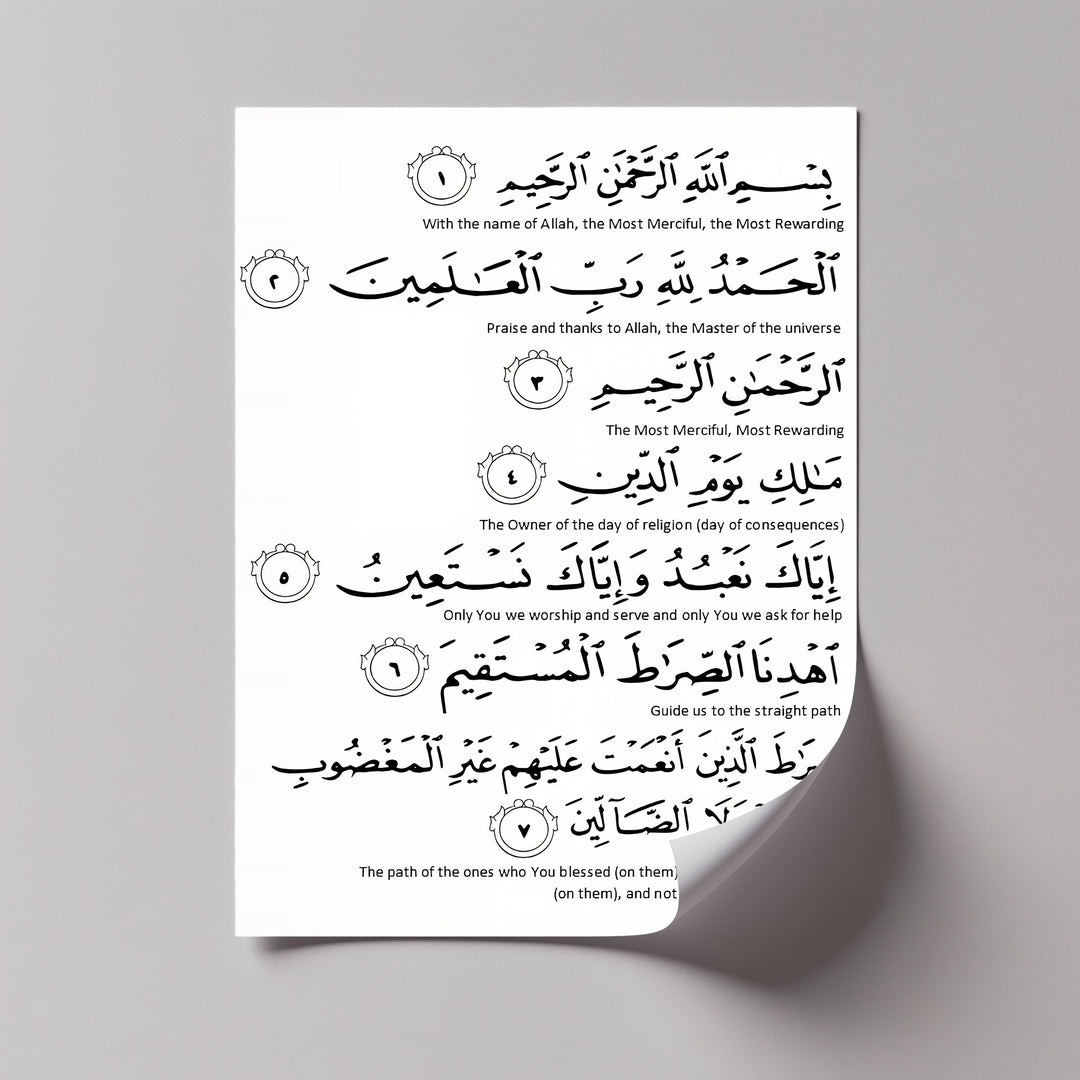 بِسْمِ ٱللَّهِ ٱلرَّحْمَٰنِ ٱلرَّحِيمِ ١
With the name of Allah, the Most Merciful, the Most Rewarding
ٱلْحَمْدُ لِلَّهِ رَبِّ ٱلْعَٰلَمِينَ ٢
Praise and thanks to Allah, the Master of the universe
ٱلرَّحْمَٰنِ ٱلرَّحِيمِ ٣
The Most Merciful, Most Rewarding
مَٰلِكِ يَوْمِ ٱلدِّينِ ٤
The Owner of the day of religion (day of consequences)
إِيَّاكَ نَعْبُدُ وَإِيَّاكَ نَسْتَعِينُ ٥
Only You we worship and serve and only You we ask for help
ٱهْدِنَا ٱلصِّرَٰطَ ٱلْمُسْتَقِيمَ ٦
Guide us to the straight path
ٱلَّذِينَ أَنْعَمْتَ عَلَيْهِمْ غَيْرِ ٱلْمَغْضُوبِ
ٱلضَّآلِّينَ ٧
The path of the ones who You blessed (on them)
(on them), and not